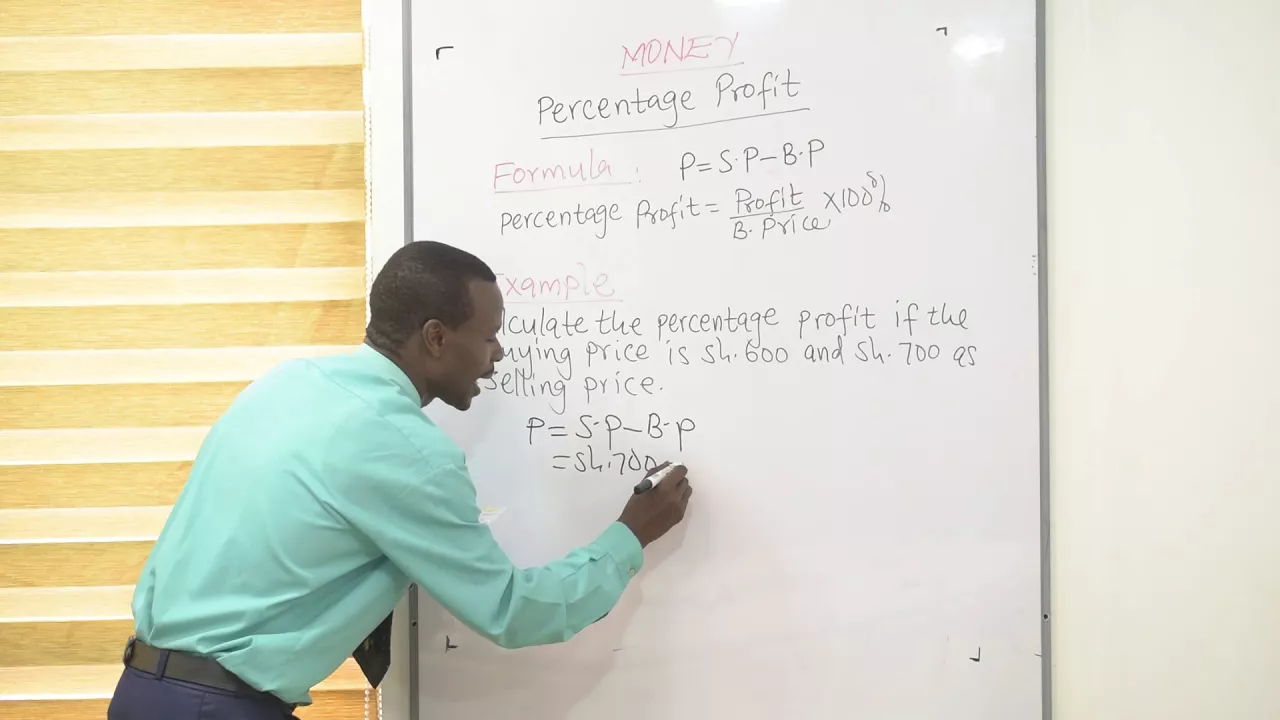 MONEY
Percentage Profit
Formula : P = S.P – B.P
percentage Profit = Profit / B. Price × 100%
Example
lculate the percentage profit if the
uying price is Sh. 600 and Sh. 700 as
Selling price.
P = S.P – B.P
= Sh. 700